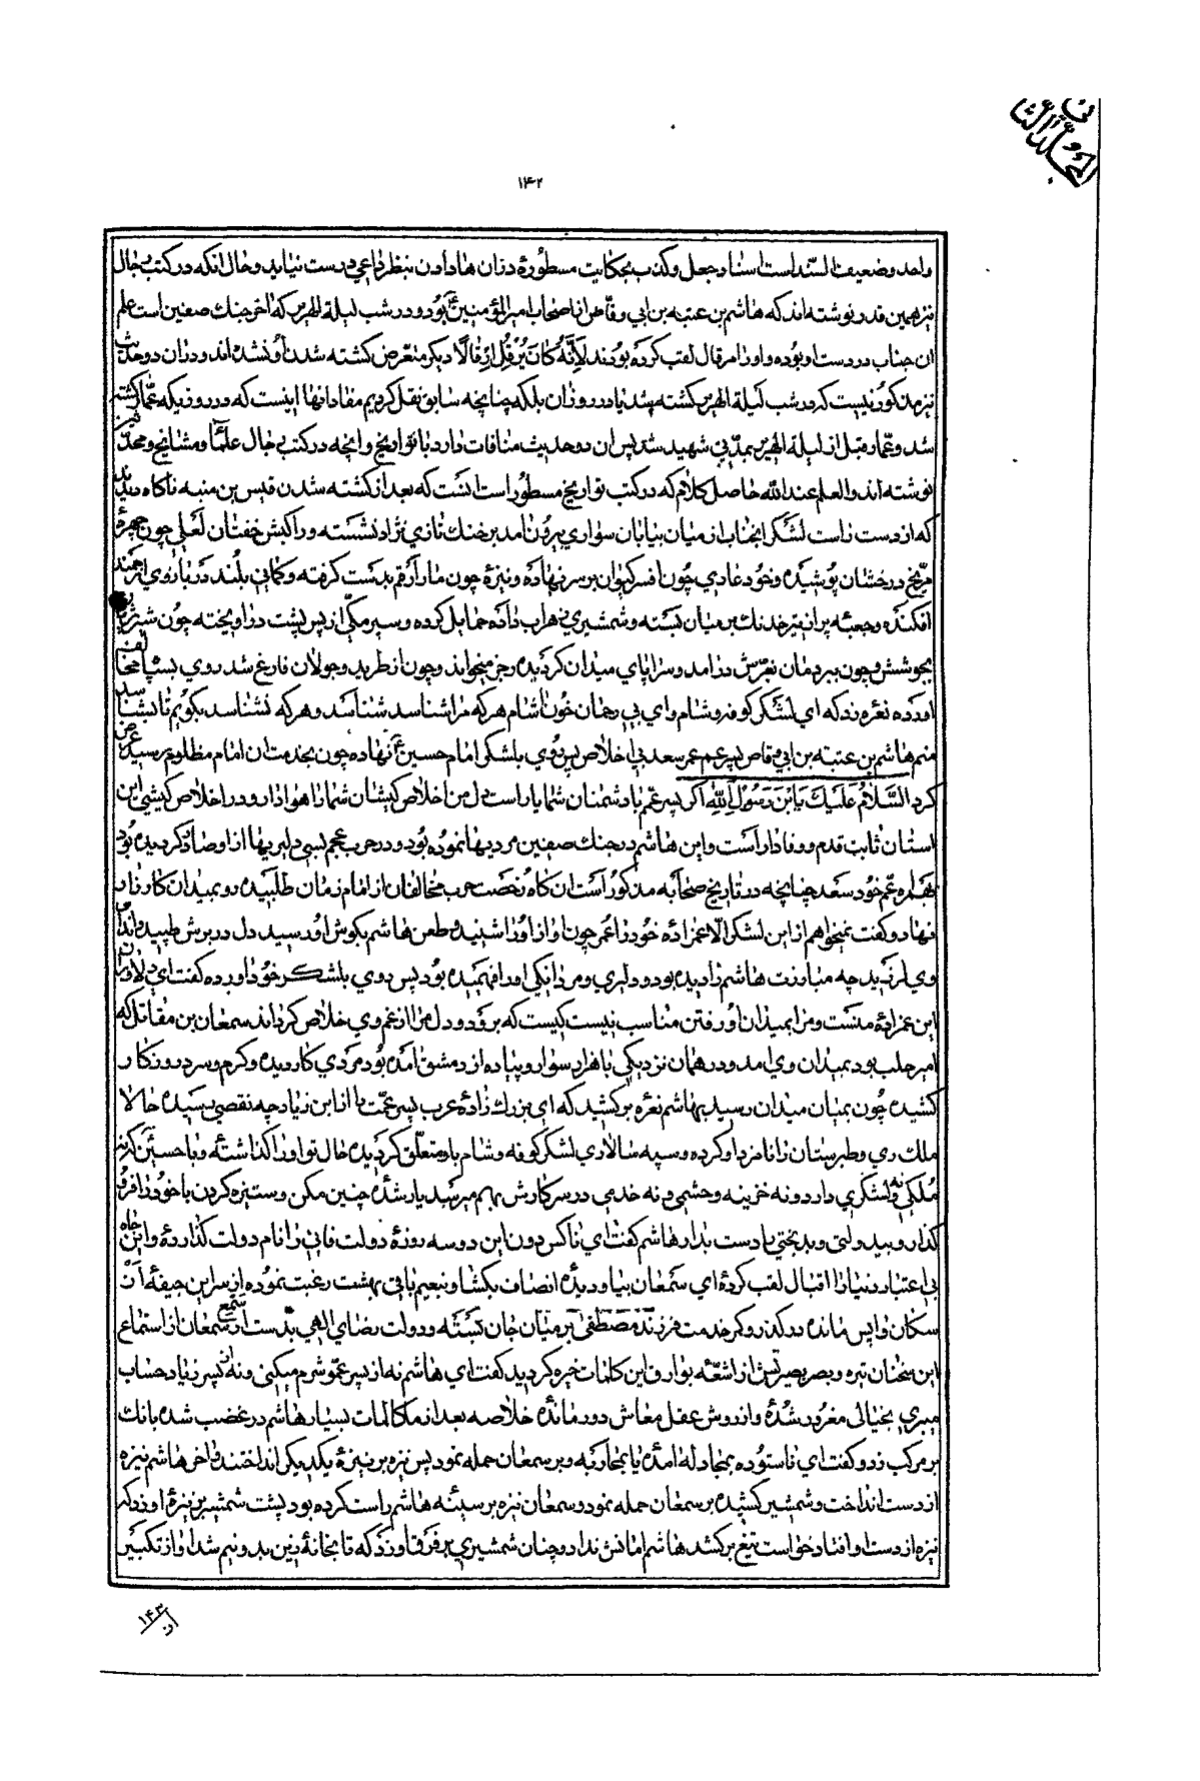 المجلد الثاني
۱۴۲
واحد وضعیف السند است اسناد جعل و کذب بحکایت مسطوره در ان هادادن بنظر داعی درست نیاید و حال انکه در کتب رجال
نیز همین قدر نوشته اند که هاشم بن عتبه بن ابی وقاص از اصحاب امیر المؤمنین ع بود و در شب لیلة الهریر که اخر جنك صفین است علم
ان جناب در دست او بوده و او را مرقال لقب کرده بودند لانه کان یرقل ارقالا دیکر متعرض کشته شدن او نشده اند و در ان دو حدیث
نیز مذکور نیست که در شب لیلة الهریر کشته شد یا در روز ان بلکه چنانچه سابق نقل کردیم مفاد انها اینست که در روزیکه عمار کشته
شد و عمار قبل از لیلة الهریر بمدتی شهید شد پس ان دو حدیث منافات دارد با تواریخ و انچه در کتب رجال علما و مشایخ و محدثین
نوشته اند والعلم عند الله حاصل کلام که در کتب تواریخ مسطور است انست که بعد از کشته شدن قیس بن منبه ناکاه دیدند
که از دست راست لشکر انجناب از میان بیابان سواری بیرون امد بر خنك تازی نژاد نشسته و راکبش خفتان لعلی چون چهرهٔ
مریخ درخشان پوشیده و خود عادی چون افسر کیوان بر سر نهاده و نیزه چون مار ارقم بدست کرفته و کمانی بلند در بازوی ارجمند
افکنده و جعبه پر از تیر خدنك بر میان بسته و شمشیری زهراب داده حمایل کرده و سپر مکی از پس پشت در اویخته چون شیر ژیان
بجوشش و چون ببر دمان بغرش در امد و سراپای میدان کردیده رجز میخواند و چون از طرید و جولان فارغ شد روی بسپاه مخالف
اورده نعره زد که ای لشکر کوفه و شام و ای بی رحمان خون اشام هر که مرا شناسد شناسد و هر که نشناسد بکویم تا بشناسد
منم هاشم بن عتبه بن ابی وقاص پسر عم عمر سعد بی اخلاص پس روی بلشکر امام حسین ع نهاده چون بخدمت ان امام مظلوم رسید عرض
کرد السلام علیك یابن رسول الله اکر پسر عمم با دشمنان شما یار است دل من اخلاص کیشان شما را هوادار و در اخلاص کیشی این
استان ثابت قدم و وفادار است و این هاشم در جنك صفین مردیها نموده بود و در حرب عجم بسی دلیریها از او صادر کردیده بود
همراه عم خود سعد چنانچه در تاریخ صحابه مذکور است ان کاه رخصت حرب مخالفان از امام زمان طلبیده رو بمیدان کارزار
نهاد و کفت نمیخواهم از این لشکر الا عمزاده خود را عمر چون اواز او را شنید و طعن هاشم بکوش او رسید دل در برش طپید و اندام
وی لرزید چه مبارزت هاشم را دیده بود و دلیری و مردانکی او را فهمیده بود پس روی بلشکر خود اورده کفت ای دلاوران
این عمزادهٔ منست و مرا بمیدان او رفتن مناسب نیست کیست که برود و دل مرا از غم وی خلاص کرداند سمعان بن مقاتل که
امیر حلب بود بمیدان وی امد و در همان نزدیکی با هزار سوار و پیاده از دمشق امده بود مردی کار دیده و کرم و سرد روزکار
کشیده چون بمیان میدان رسید بهاشم نعره بر کشید که ای بزرك زادهٔ عرب پسر عمت را از ابن زیاد چه نقصی رسیده حالا
ملك ری و طبرستان را نامزد او کرده و سپه سالاری لشکر کوفه و شام باو متعلق کردیده حال تو او را کذاشته و با حسین که نه
ملکی و نه لشکری دارد و نه خزینه و حشمی و نه خدمی در سر کارش بهم میرسد یار شده چنین مکن و ستیزه کردن با خود را فرو
کذار و بیدولتی و بدبختی را دست بدار هاشم کفت ای ناکس دون این دو سه روزهٔ دولت فانی را نام دولت کذاردهٔ و این جاه
بی اعتبار دنیا را اقبال لقب کردهٔ ای سمعان بیا و دیدهٔ انصاف بکشا و بنعیم باقی بهشت رغبت نموده از سر این جیفهٔ از
سکان واپس مانده در کذر و کمر خدمت فرزند مصطفی بر میان جان بسته و دولت رضای الهی بدست ار سمعان از استماع
این سخنان تیره و بصر بصیرتش از اشعهٔ بوارق این کلمات خیره کردید کفت ای هاشم نه از پسر عمو شرم میکنی و نه از پسر زیاد حساب
میبری بخیالی مغرور شدهٔ و از روش عقل معاش دور ماندهٔ خلاصه بعد از مکالمات بسیار هاشم در غضب شده بانك
بر مرکب زد و کفت ای ناستوده بمجادله امدهٔ یا بمحاربه و بر سمعان حمله نمود پس نیزه بر نیزهٔ یکدیکر انداختند و اخر هاشم نیزه
از دست انداخت و شمشیر کشیده بر سمعان حمله نمود و سمعان نیزه بر سینه هاشم راست کرده بود پشت شمشیر بر نیزهٔ او زد که
نیزه از دست او افتاد خواست تیغ بر کشد هاشم امانش نداد و چنان شمشیری بر فرق او زد که تا بخانهٔ زین بدو نیم شد اواز تکبیر
از
۱۴۳